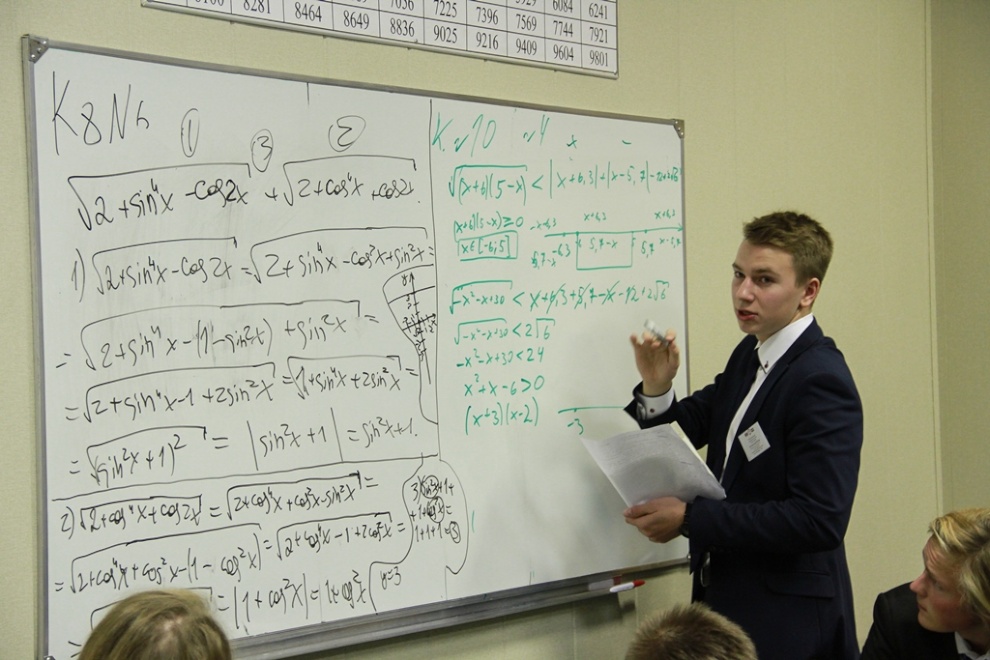 8281 8464 8649 8836 7225 9025 7396 9216 7569 9409 6084 7744 9604 6241 7921 9801
K8N6
① ③ ②
√(2+sin⁴x-cos2x) + √(2+cos⁴x+cos2x).
1) √(2+sin⁴x-cos2x = √(2+sin⁴x-cos²x+sin²x) =
= √(2+sin⁴x-(1-sin²x)+sin²x) =
= √(2+sin⁴x-1+2sin²x) = √(1+sin⁴x+2sin²x) =
= √(sin²x+1)² = |sin²x+1| = sin²x+1.
2) √(2+cos⁴x+cos2x) = √(2+cos⁴x+cos²x-sin²x) =
= √(2+cos⁴x+cos²x-(1-cos²x)) = √(2+cos⁴x-1+2cos²x) =
= |1+cos²x| = 1+cos²x
1+1+1=3
y=3
K. №10 №4 + -
√((x+6)(5-x)) < |x+6,3|+|x-5,7|-12+2√6
(x+6)(5-x)≥0
x∈[-6;5]
-x-6,3 x+6,3 x+6,3
-6,3 5,7-x 5,7
√(-x²-x+30) < x+6,3+5,7-x-12+2√6
√(-x²-x+30) < 2√6
-x²-x+30<24
x²+x-6>0
(x+3)(x-2)
-3